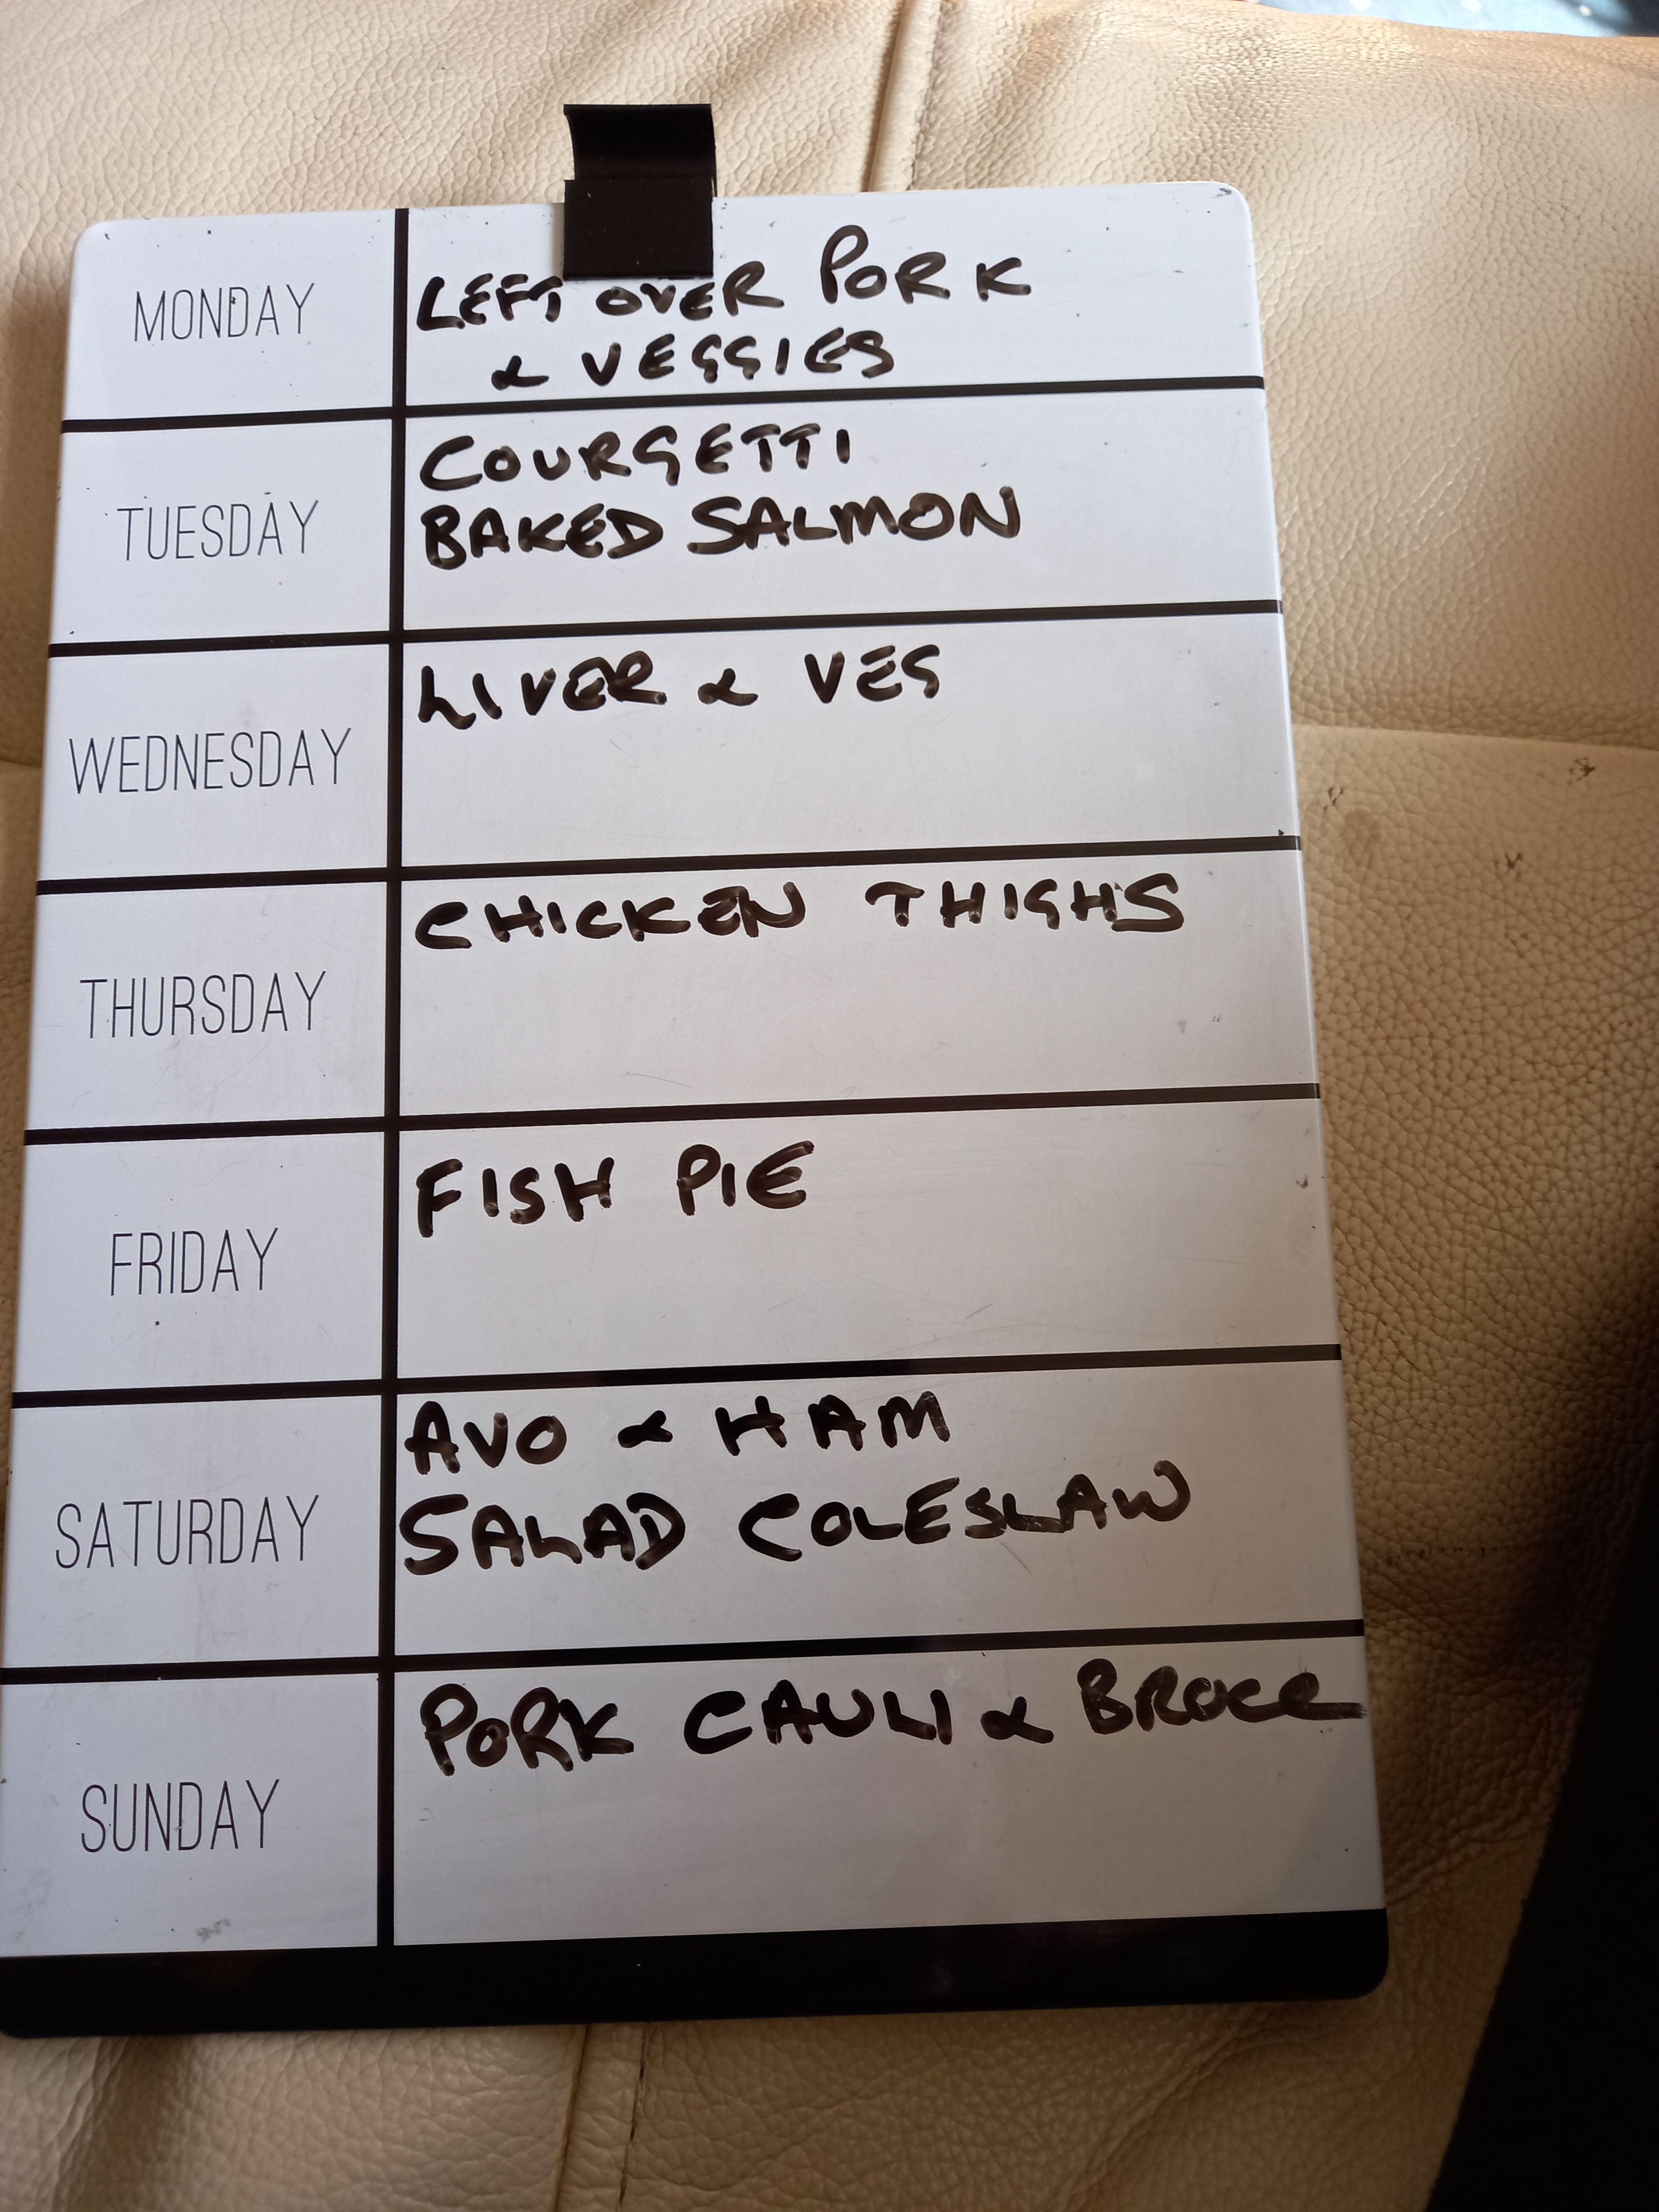 MONDAY
LEFT OVER PORK
& VEGGIES
TUESDAY
COURGETTI
BAKED SALMON
WEDNESDAY
LIVER & VEG
THURSDAY
CHICKEN THIGHS
FRIDAY
FISH PIE
SATURDAY
AVO & HAM
SALAD COLESLAW
SUNDAY
PORK CAULI &